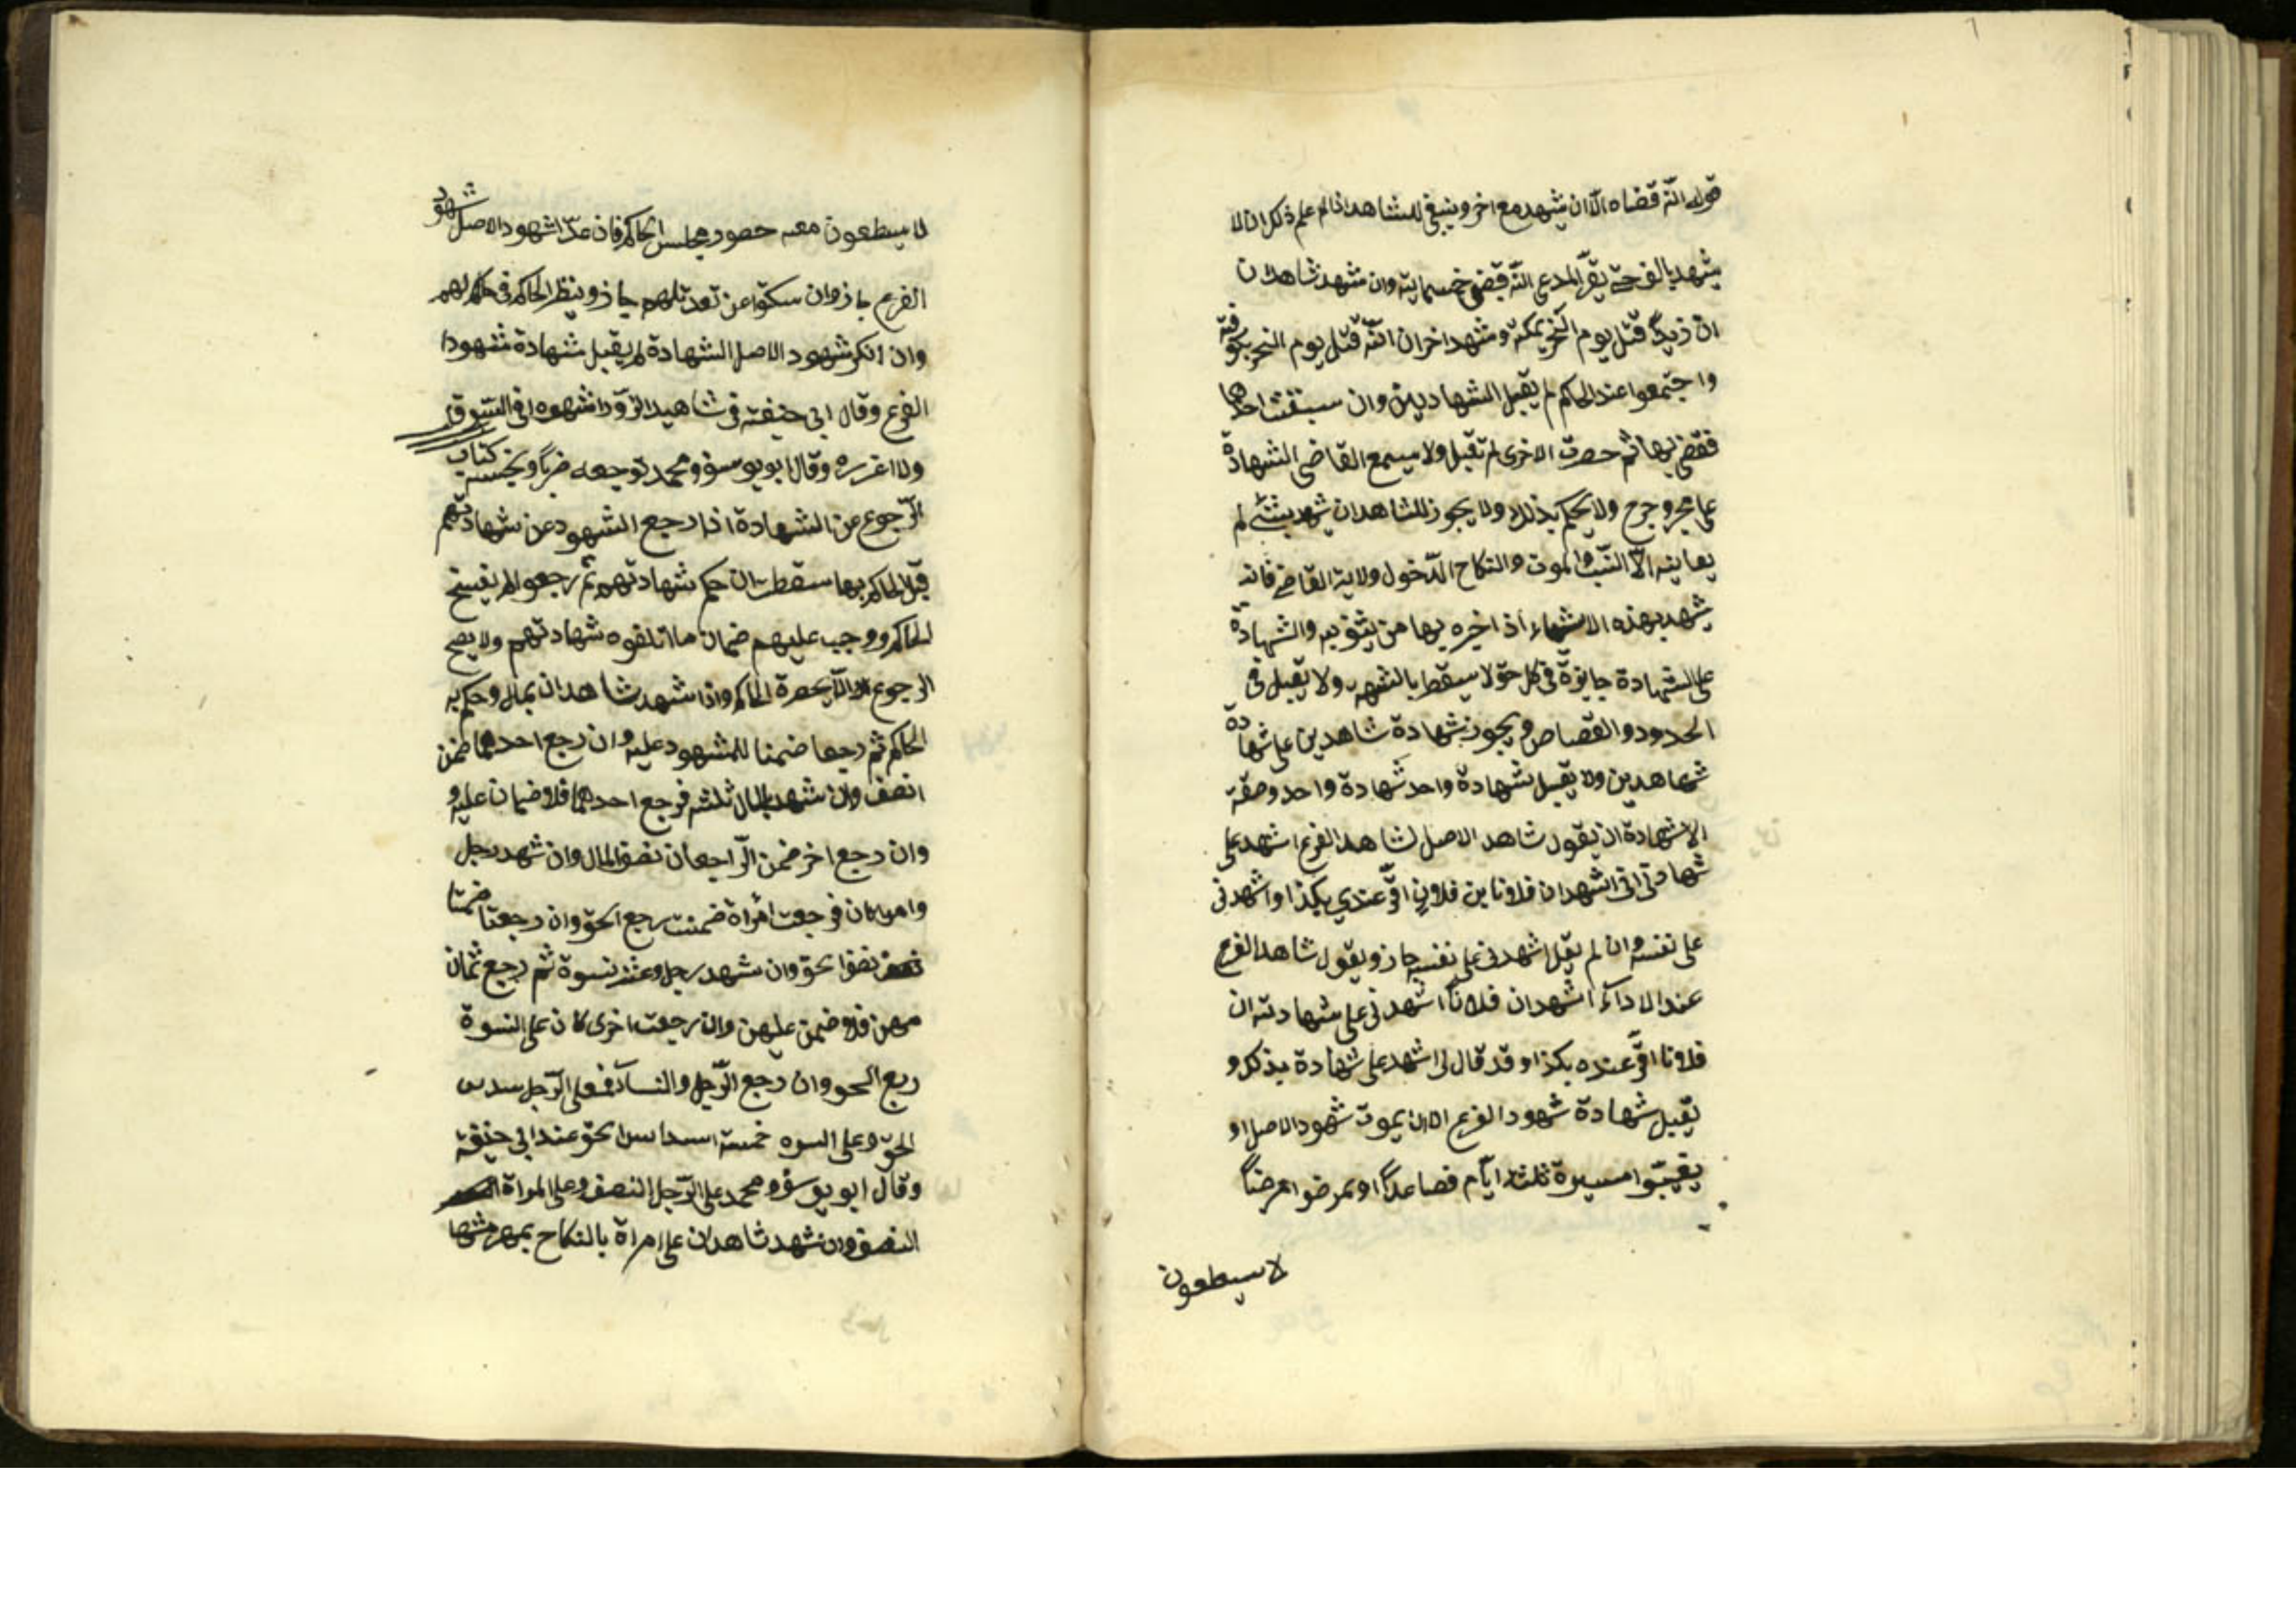 قوله انّه قضاه الّا ان يشهد مع اخر وينبغي للشاهد اذا لم علم ذلك ان لا
يشهد بالف حتّى يقرّ المدعى انّه قبض خمسماية وان شهد شاهدان
ان زيداً قتل يوم النحر بمكة وشهد اخران انّه قتل يوم النحر بكوفة
واجتمعوا عند الحاكم لم يقبل الشهادتين وان سبقت احدهما
فقضى بها ثم حضرت الاخرى لم تقبل ولا يسمع القاضى الشهادة
على جرح ولا يحكم بذلك ولا يجوز للشاهد ان يشهد بشئ لم
يعاينه الّا النسب والموت والنكاح الدّخول ولاية القاضي فانه
شهد بهذه الاشياء اذا اخبره بها من يثق به والشهادة
على الشهادة جايزة فى كل حق لا يسقط بالشبهه ولا يقبل فى
الحدود والقصاص ويجوز شهادة شاهدين على شهادة
شاهدين ولا يقبل شهادة واحد شهادة واحد وصفة
الاشهادة ان يقول شاهد الاصل لشاهد الفرع اشهد على
شهادتى انى اشهد ان فلانا بن فلان اقرّ عندي بكذا واشهدنى
على نفسه وان لم يقل اشهدنى على نفسه جاز ويقول شاهد الفرع
عند الاداء اشهد ان فلاناً اشهدنى على شهادته ان
فلانا اقرّ عنده بكذا وقد قال لى اشهد على شهادة بذلك و
يقبل شهادة شهود الفرع الا ان يموت شهود الاصل او
يغيبّوا مسيرة ثلثة ايّام فصاعداً او يمرضوا مرضاً
لا سيطعون
لا سيطعون معه حضور مجلس الحاكم فان عدّل شهود الاصل شهود
الفرع جاز وان سكتوا عن تعديلهم جاز وينظر الحاكم فى حالهم
وان انكر شهود الاصل الشهادة لم يقبل شهادة شهودا
الفرع وقال ابى حنيفة فى شاهد الزّور اشهره فى السّوق
ولا اعزره وقال ابو يوسف ومحمد توجعه ضرباً ونحبسه كتاب
الرّجوع عن الشهادة اذا رجع الشهود عن شهادتهم
قبل الحاكم بها سقطت ان حكم شهادتهم ثم رجعوا لم يفسخ
الحاكم ووجب عليهم ضمان ما اتلفوه شهادتهم ولا يصح
الرجوع الّا بحضرة الحاكم واذا شهد شاهدان بمال وحكم به
الحاكم ثم رجعا ضمنا للمشهود عليه وان رجع احدهما ضمن
النصف وان شهد بالمال ثلثه فرجع احدهما فلا ضمان عليه و
وان رجع اخر ضمن الرّاجعان نصف المال وان شهد رجل
وامراتان فرجعت امرأة ضمنت ربع الحق وان رجعتا ضمنتا
نصف الحق وان شهد رجل وعشر نسوة ثم رجع ثمان
منهن فلا ضمن عليهن وان رجعت اخرى كان على النسوة
ربع الحق وان رجع الرّجل والنساء فعلى الرّجل سدس
الحق وعلى النسوه خمسة اسداس الحق عند ابى حنيفة
وقال ابو يوسف ومحمد على الرّجل النصف وعلى المراة
النصف وان شهد شاهدان على امراة بالنكاح بمهر مثلها